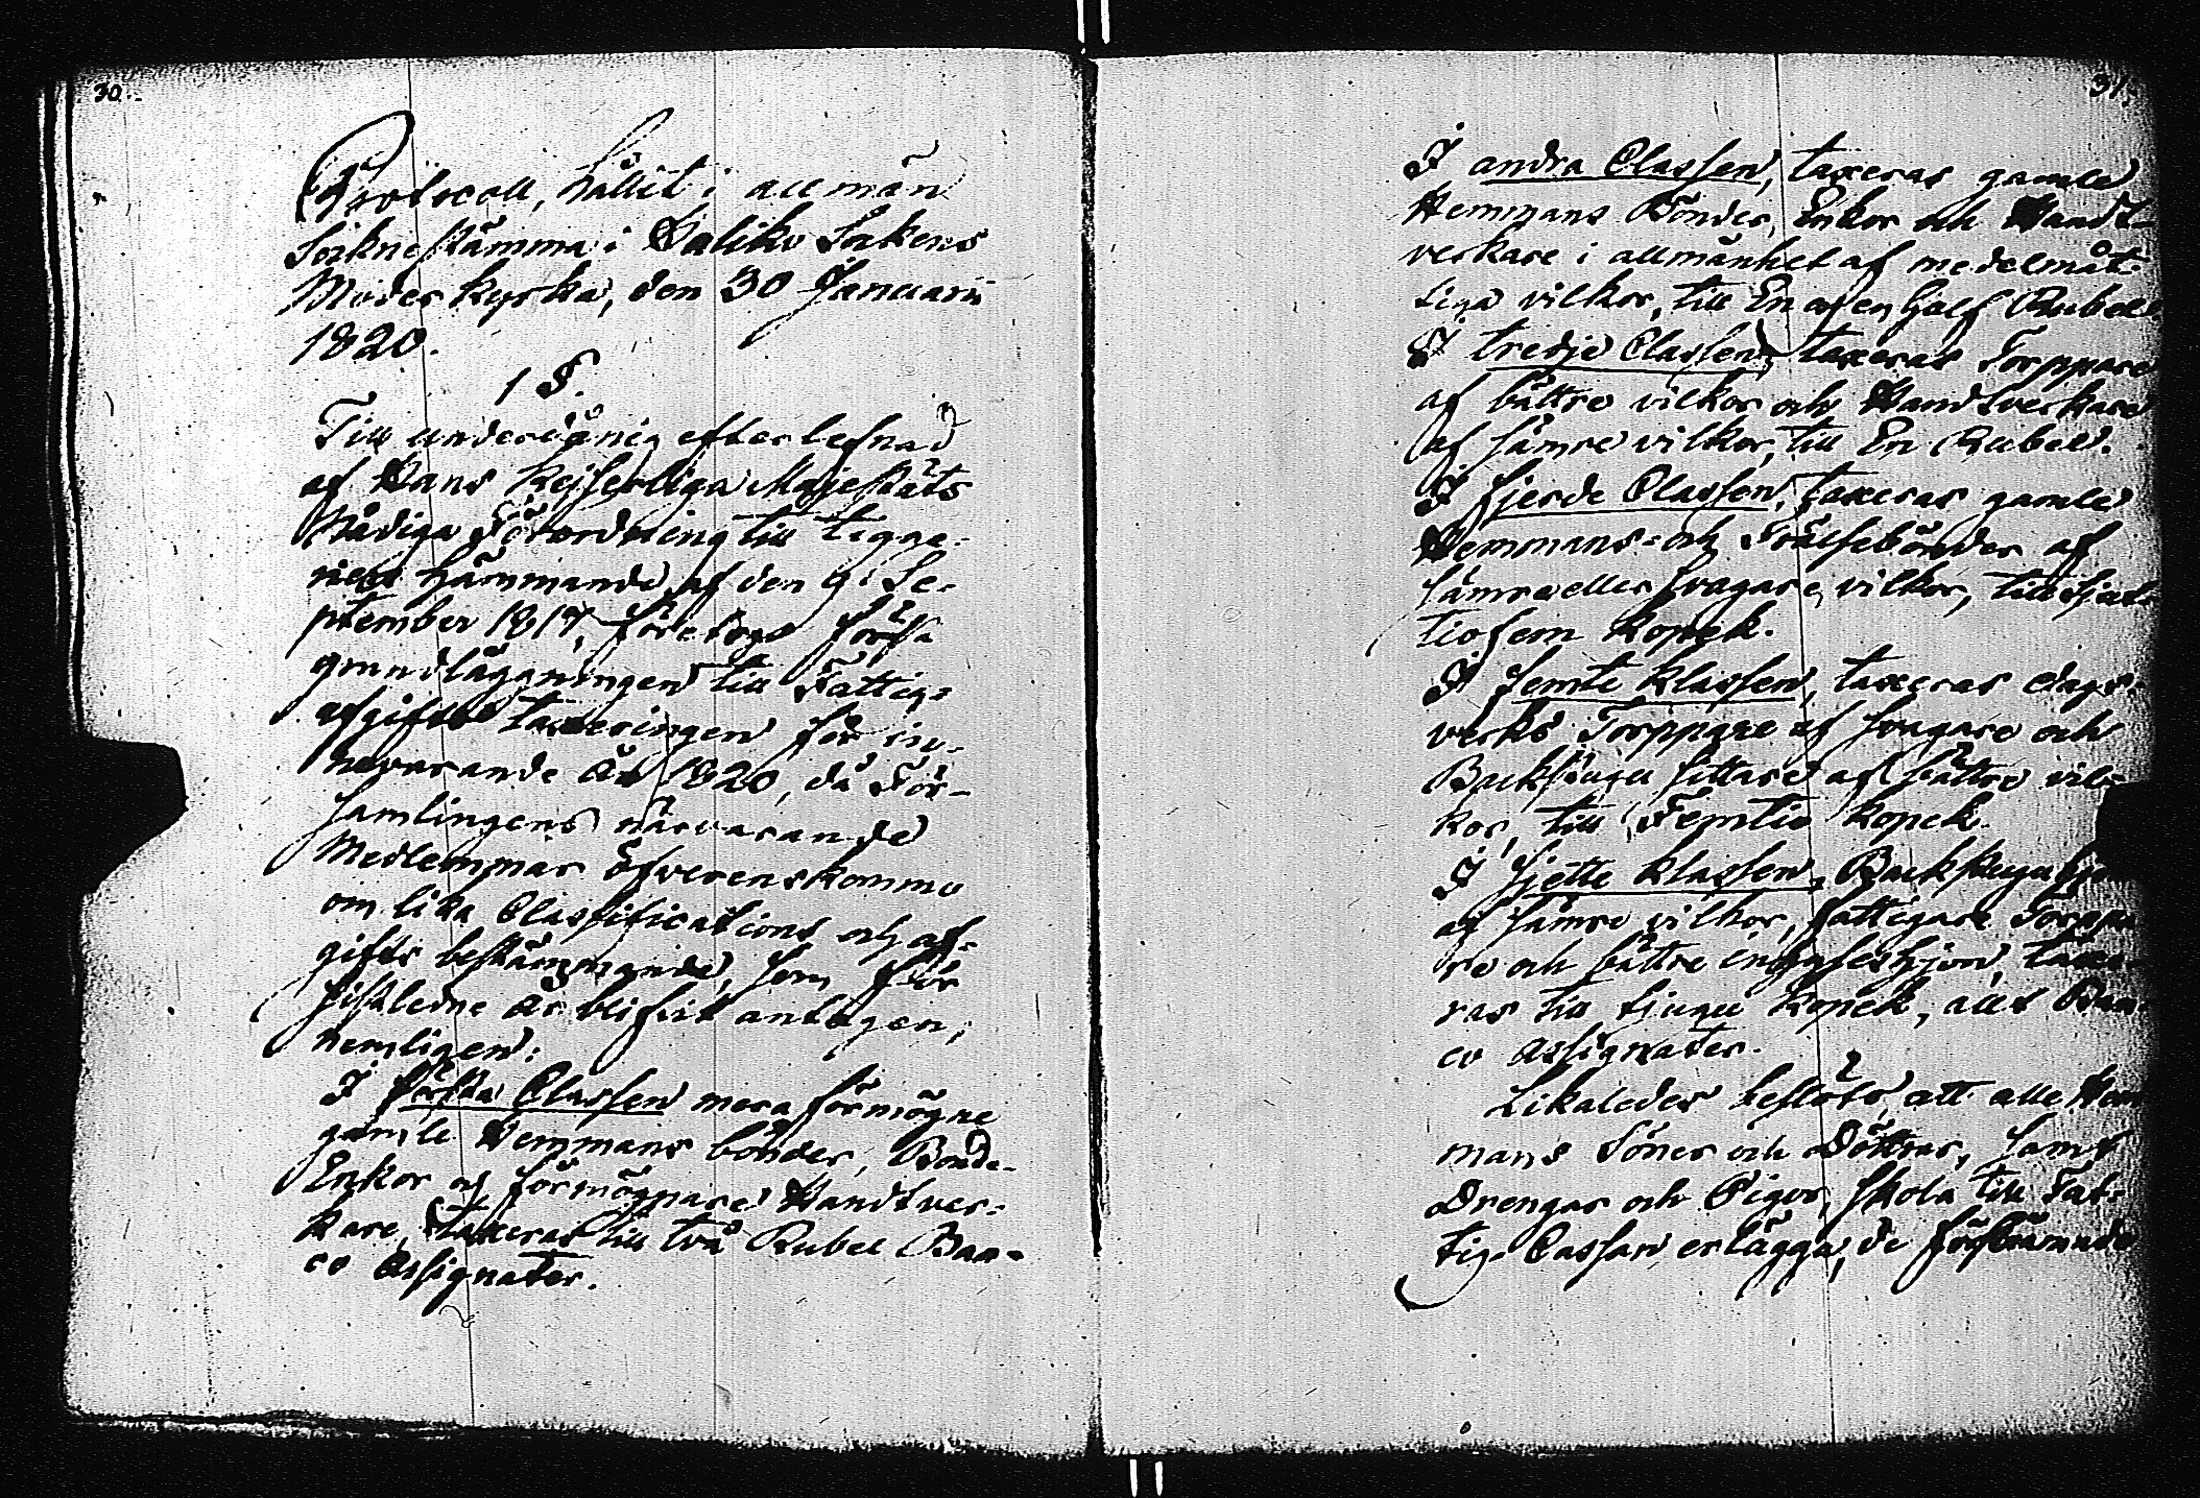 30.
Protocoll, hållit i allmän
Sockne stämma i Haliko Sockens
Moder kyrka, den 30 Januarii
1820.
1 §.
Till underdånig efterlefnad
af Hans Kejserliga Majestäts
Nådiga Förordning till tigge-
riets hämmande af den 9 Se-
ptember 1817, företogs första
grundläggningen till Fattig-
afgifts taxeringen för in-
nevarande År 1820, då För-
samlingens närvarande
Medlemmar öfverenskommo
om lika Classifications och af-
gifts bestämmande, som för
sistledne År blifvit antagen,
nemligen:
I första Classen mera förmögne
gamle Hemmans bönder, Bonde-
Enkor och förmögnare Handtver-
kare, taxeras till två Rubel Ban-
co Assignater.
31.
I andra Classen, taxeras gamle
Hemmans Bönder, Enkor och Handt-
verkare i allmänhet af medelmåt-
tiga vilkor, till En och en half Rubel.
I tredje Classen, taxeras Torppare
af bättre vilkor och Handtverkare
af sämre vilkor, till En Rubel.
I fjerde Classen, taxeras gamle
Hemmans- och Frälsebönder af
sämre eller svagare vilkor, till Sjut-
tiofem Kopek.
I femte Klassen, taxeras dags-
verks Torppare af svagare och
Backstugu sittare af bättre vil-
kor, till Femtio Kopek.
I sjette Klassen, Backstugu hjon
af sämre vilkor, fattigare Torppa-
re och bättre inhyses hjon, taxe-
ras till tjugu Kopek, allt Ban-
co Assignater.
Likaledes beslöts, att alle Hem-
mans Söner och Döttrar, samt
Drengar och Pigor, skola till Fat-
tig-Cassan erlägga, de förstnämnde